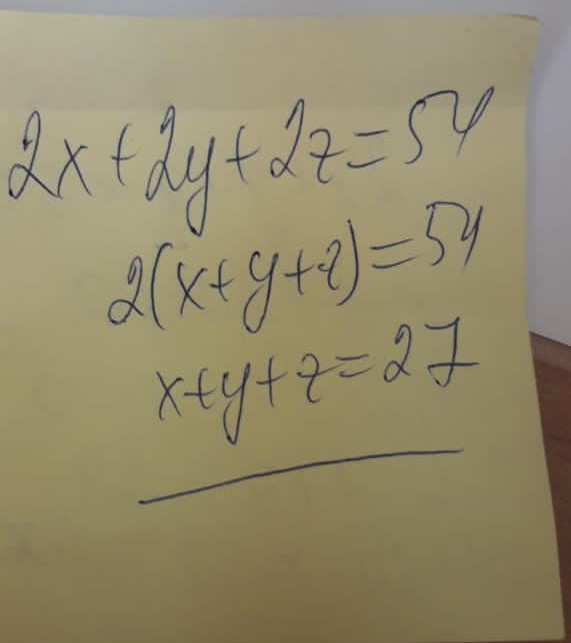 2x+2y+2z=54
2(x+y+z)=54
x+y+z=27